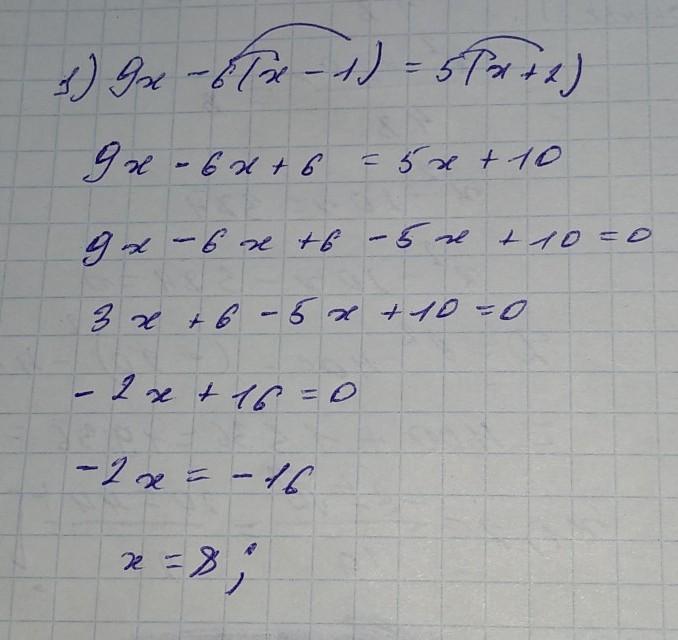 1) 9x - 6(x - 1) = 5(x + 2)
9x - 6x + 6 = 5x + 10
9x - 6x + 6 - 5x + 10 = 0
3x + 6 - 5x + 10 = 0
- 2x + 16 = 0
- 2x = - 16
x = 8;